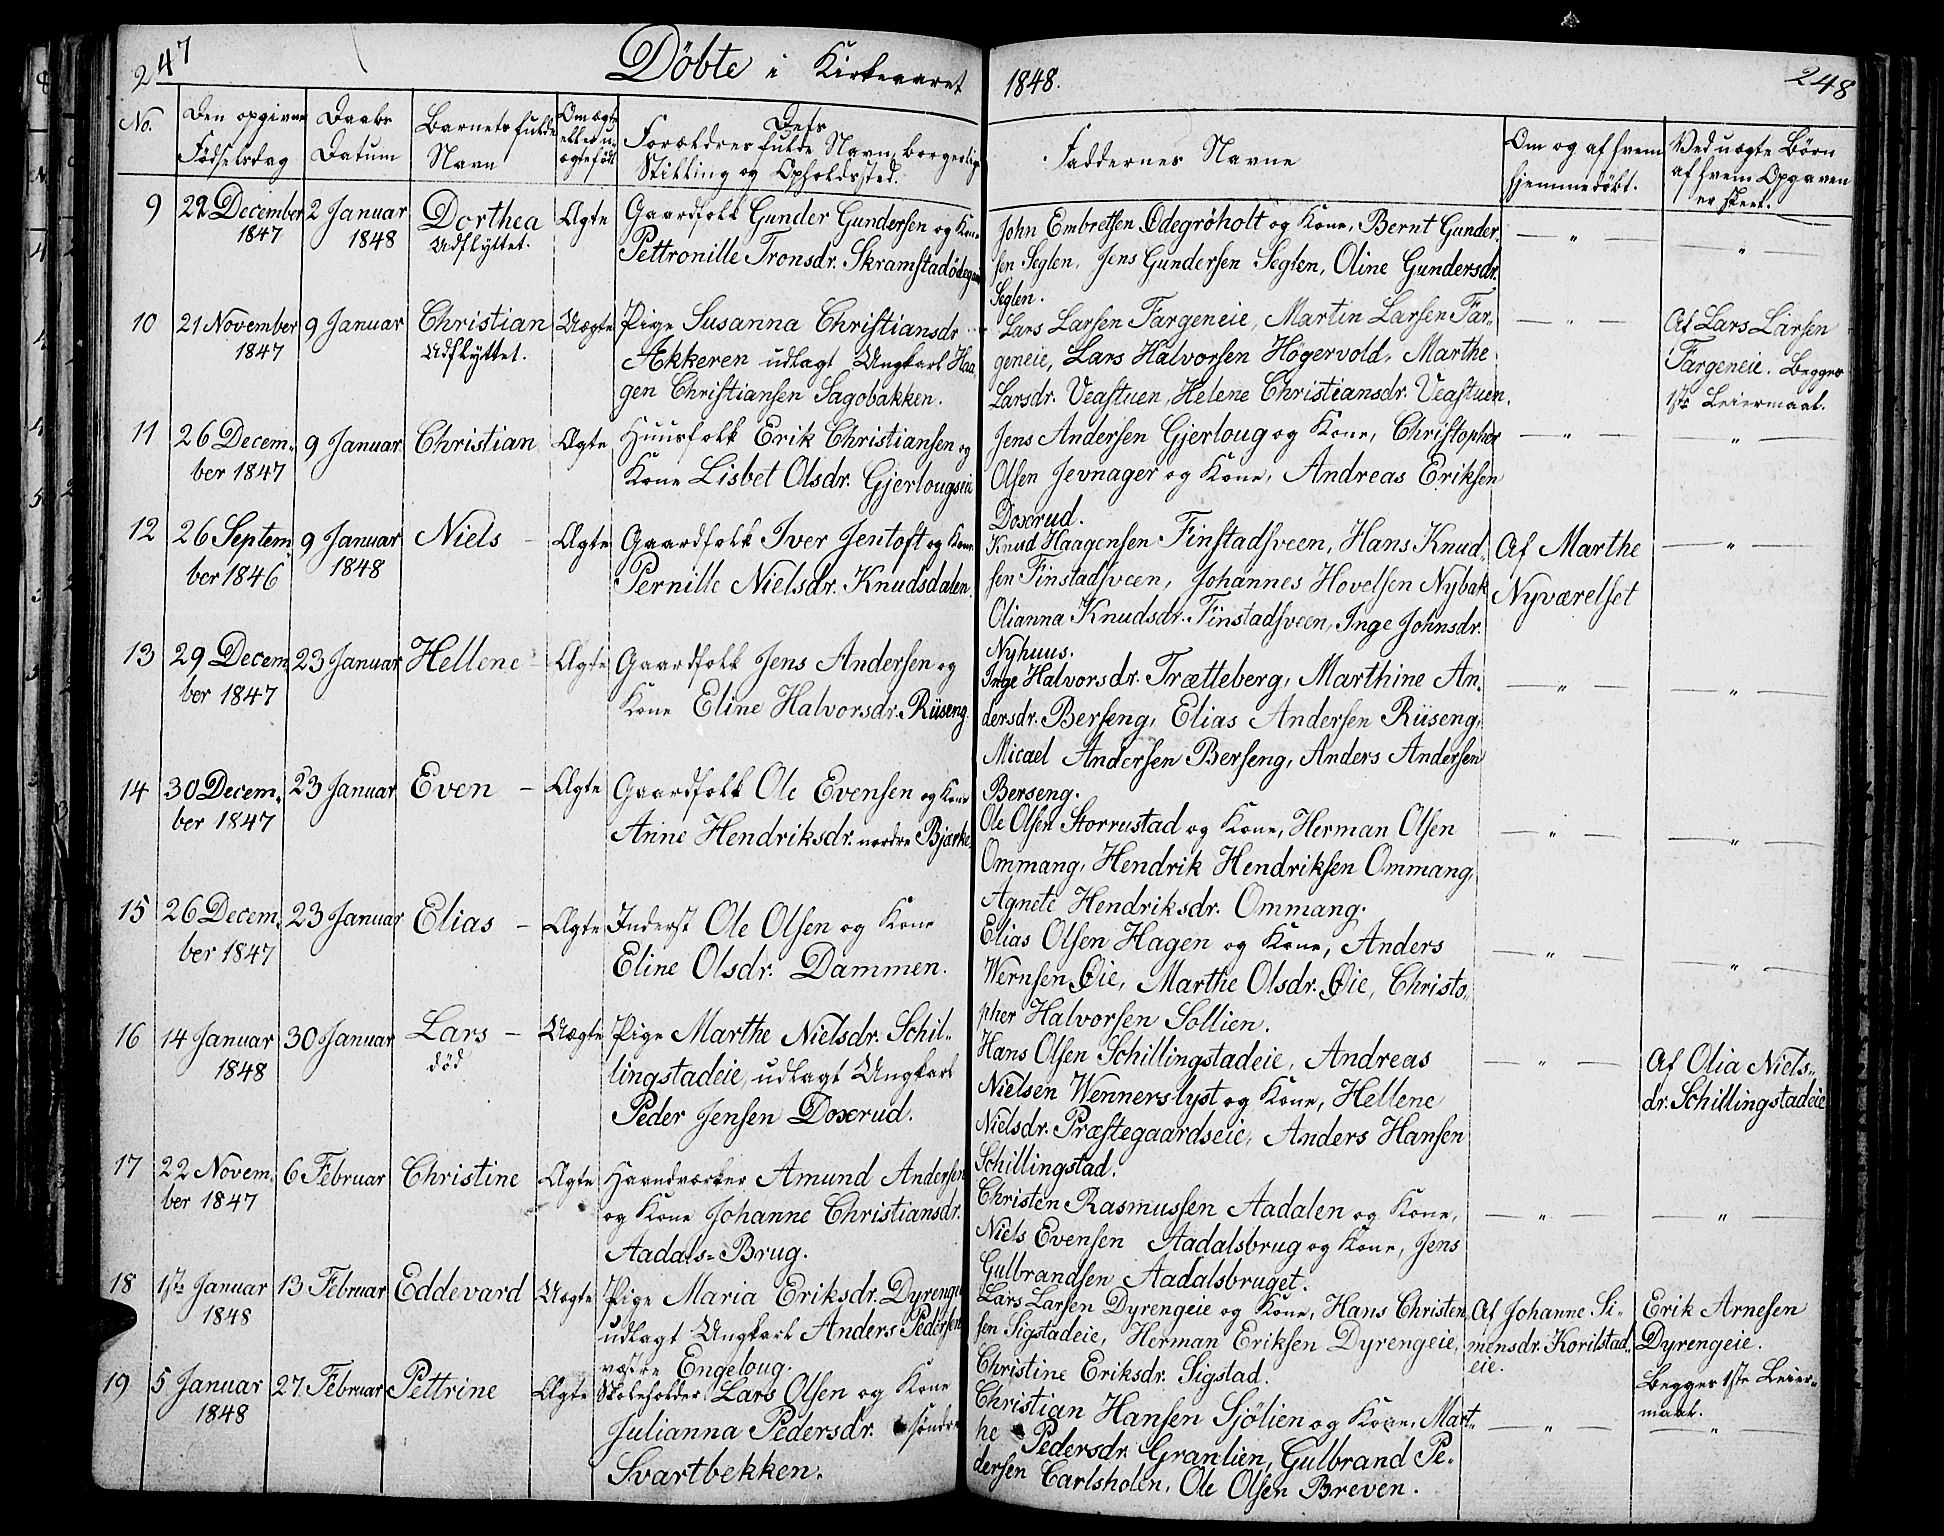 247
Döbte i Kirkeaaret
1848.
248
No.
Den opgivne Födselsdag
Daabs Datum
Barnets fulde Navn
Om ægte eller uægtefödt
Dets Forældres fulde Navn, borgerlige Stilling og Opholdssted.
Faddernes Navne
Om og af hvem hjemmedöbt.
Ved uægte Börn af hvem Opgaven er skeet.
9
22 December 1847
2 Januar 1848
Dorthea
Udflyttet.
Ægte
Gaardfolk Gunder Gundersen og Kone
Pettronille Tronsdr. Skramstadödegaard
John Embretsen Ödegröholt og Kone, Bernt Gunder-
sen Seglen, Jens Gundersen Seglen, Oline Gundersdr.
Seglen.
— „ —
— „ —
10
21 November 1847
9 Januar
Christian
Udflyttet.
Uægte
Pige Susanna Christiansdr.
Akkeren udlagt Ungkarl Haa-
gen Christiansen Sagobakken.
Lars Larsen Fargeneie, Martin Larsen Far-
geneie, Lars Halvorsen Högervold, Marthe
Larsdr. Veastuen, Helene Christiansdr. Veastuen.
— „ —
Af Lars Larsen
Fargeneie. Begges
1ste Leiermaal.
11
26 Decem-
ber 1847
9 Januar
Christian
Ægte
Huusfolk Erik Christiansen og
Kone Lisbet Olsdr. Gjerlougseie
Jens Andersen Gjerloug og Kone, Christopher
Olsen Jevnager og Kone, Andreas Eriksen
Doxrud.
— „ —
— „ —
12
26 Septem-
ber 1846
9 Januar
1848
Niels —
Ægte
Gaardfolk Iver Jentoft og Kone
Pernille Nielsdr. Knudsdalen.
Knud Haagensen Finstadsveen, Hans Knud-
sen Finstadsveen, Johannes Hovelsen Nybak
Olianna Knudsdr. Finstadsveen, Inge Johnsdr.
Nyhuus.
Af Marthe
Nyværelset
— „ —
13
29 Decem-
ber 1847
23 Januar
Hellene —
Ægte
Gaardfolk Jens Andersen og
Kone Eline Halvorsdr. Rüseng.
Inge Halvorsdr. Trætteberg, Marthine An-
dersdr. Berseng, Elias Andersen Rüseng,
Micael Andersen Berseng, Anders Andersen
Berseng.
— „ —
— „ —
14
30 Decem-
ber 1847
23 Januar
Even —
Ægte
Gaardfolk Ole Evensen og Kone
Anne Hendriksdr. nordre Bjørke.
Ole Olsen Storrustad og Kone, Herman Olsen
Ommang, Hendrik Hendriksen Ommang,
Agnete Hendriksdr. Ommang.
— „ —
— „ —
15
26 Decem-
ber 1847
23 Januar
Elias —
Ægte
Inderst Ole Olsen og Kone
Eline Olsdr. Dammen.
Elias Olsen Hagen og Kone, Anders
Wernsen Öie, Marthe Olsdr. Öie, Christo-
pher Halvorsen Sollien.
— „ —
— „ —
16
14 Januar
1848
30 Januar
Lars —
död
Uægte
Pige Marthe Nielsdr. Schil-
lingstadeie, udlagt Ungkarl
Peder Jensen Doxrud.
Hans Olsen Schillingstadeie, Andreas
Nielsen Wennerslyst og Kone, Hellene
Nielsdr. Præstegaardseie, Anders Hansen
Schillingstad.
— „ —
Af Olia Niels-
dr. Schillingstadeie
17
22 Novem-
ber 1847
6 Februar
Christine
Ægte
Haandværker Amund Andersen
og Kone Johanne Christiansdr.
Aadals-Brug.
Christen Rasmussen Aadalen og Kone,
Niels Evensen Aadalsbrug og Kone, Jens
Gulbrandsen Aadalsbruget.
— „ —
— „ —
18
1ste Januar
1848
13 Februar
Eddevard
Uægte
Pige Maria Eriksdr. Dyrengeie
udlagt Ungkarl Anders Pedersen
vestre Engeloug.
Lars Larsen Dyrengeie og Kone, Hans Christen-
sen Sigstadeie, Herman Eriksen Dyrengeie,
Christine Eriksdr. Sigstad.
Af Johanne Si-
mensdr. Korilstad-
eie.
Erik Arnesen
Dyrengeie.
Begges 1ste Leier-
maal.
19
5 Januar
1848
27 Februar
Pettrine
Ægte
Skoleholder Lars Olsen og Kone
Julianna Pedersdr. söndre
Svartbekken.
Christian Hansen Sjölien og Kone, Mart-
he Pedersdr. Granlien, Gulbrand Pe-
dersen Carlsholen, Ole Olsen Breven.
— „ —
— „ —